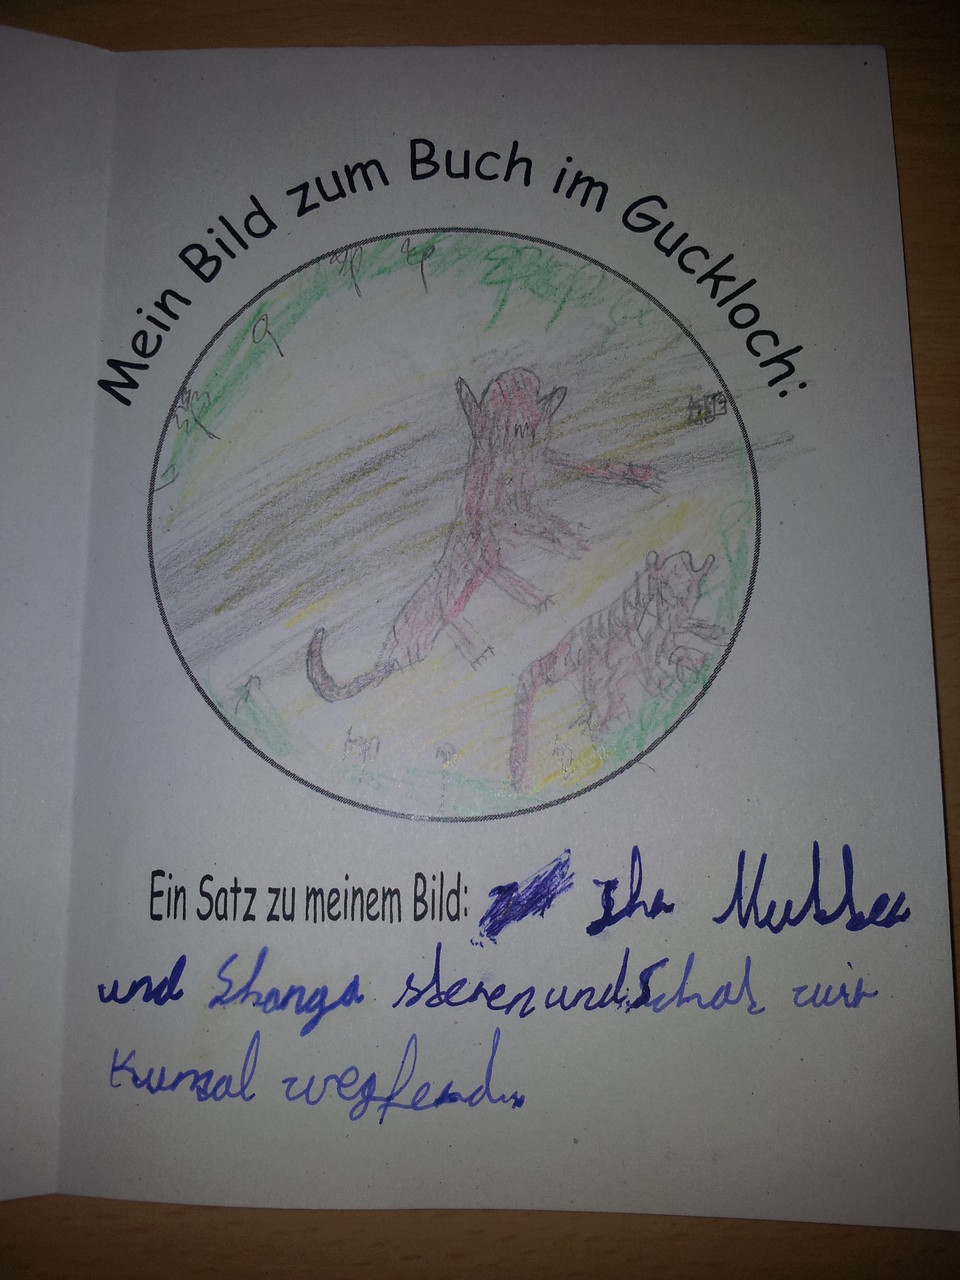 Mein Bild zum Buch im Guckloch:
Ein Satz zu meinem Bild: Iha Mutter
und Shanga steren und Schat wir
Kumal wegferd.